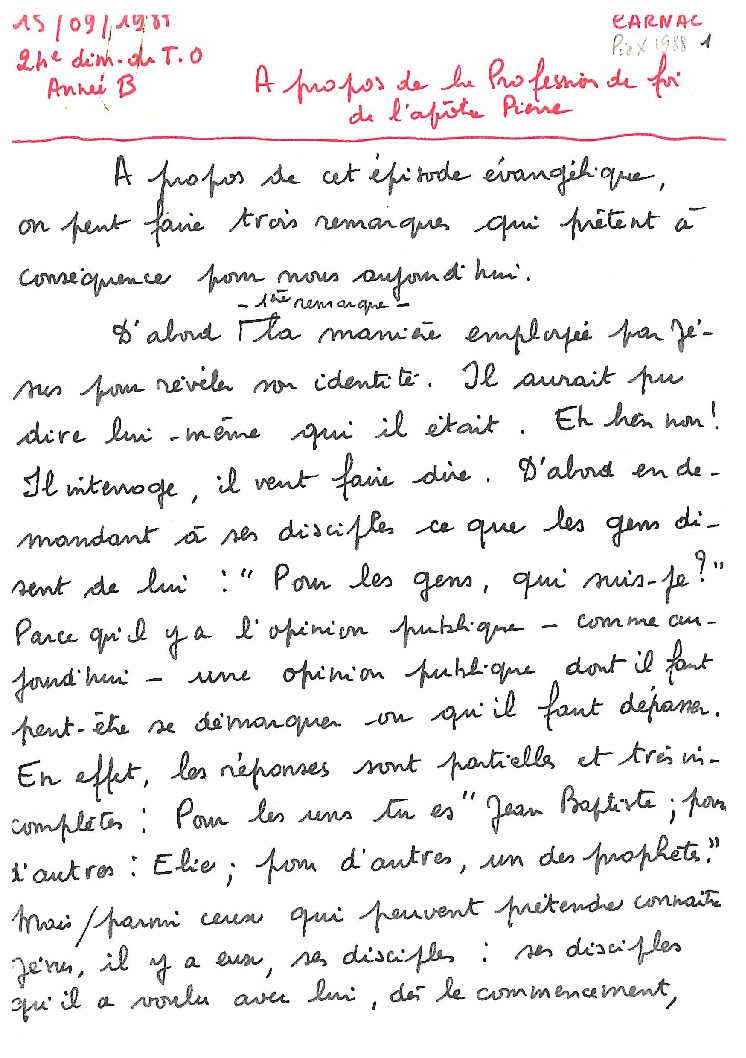 15/09/1988
CARNAC
24e dim. du T.O
Pie X 1988 1
Année B
A propos de la Profession de foi
de l'apôtre Pierre
A propos de cet épisode évangélique,
on peut faire trois remarques qui prêtent à
conséquence pour nous aujourd'hui.
- 1ère remarque -
D'abord la manière employée par Jé-
sus pour révéler son identité. Il aurait pu
dire lui-même qui il était. Eh bien non!
Il interroge, il veut faire dire. D'abord en de-
mandant à ses disciples ce que les gens di-
sent de lui : "Pour les gens, qui suis-je?"
Parce qu'il y a l'opinion publique - comme au-
jourd'hui - une opinion publique dont il faut
peut-être se démarquer ou qu'il faut dépasser.
En effet, les réponses sont partielles et très in-
complètes : Pour les uns tu es "Jean Baptiste ; pour
d'autres : Elie ; pour d'autres, un des prophètes."
Mais / parmi ceux qui peuvent prétendre connaître
Jésus, il y a eux, ses disciples : ses disciples
qu'il a voulu avec lui, dès le commencement,